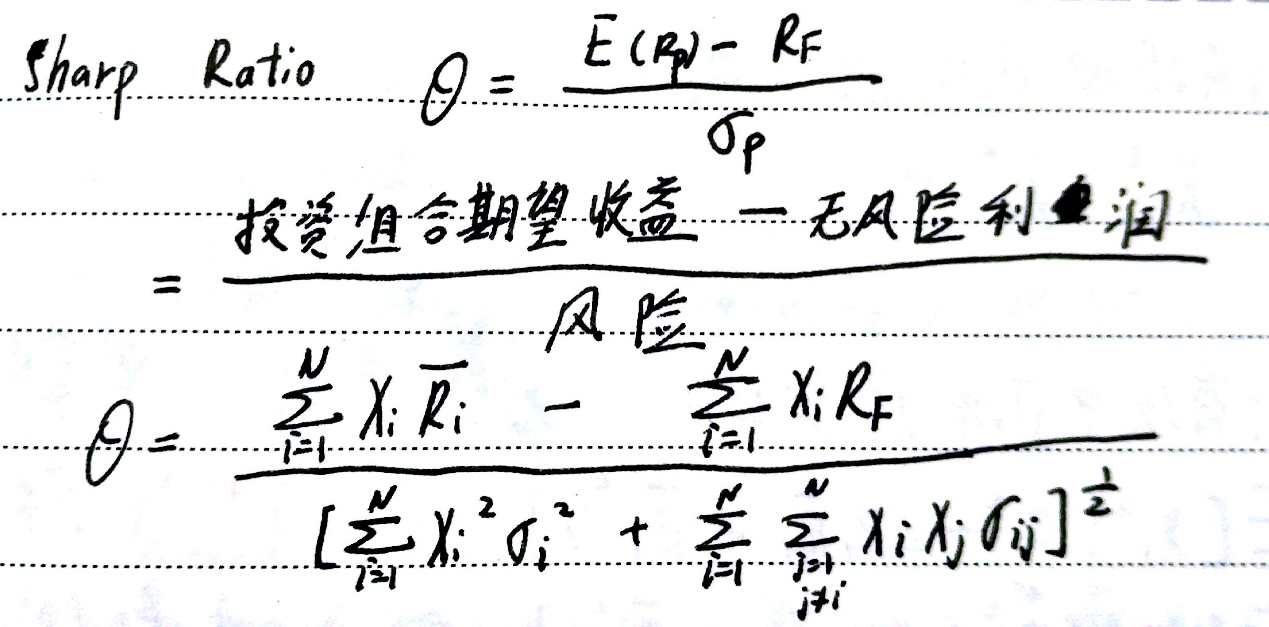 Sharp Ratio θ = (E(Rp) - RF) / σp
= (投资组合期望收益 - 无风险利润) / 风险
θ = (∑_{i=1}^{N} Xi R̅i - ∑_{i=1}^{N} Xi RF) / [∑_{i=1}^{N} Xi² σi² + ∑_{i=1}^{N} ∑_{j=1, j≠i}^{N} Xi Xj σij]^{1/2}